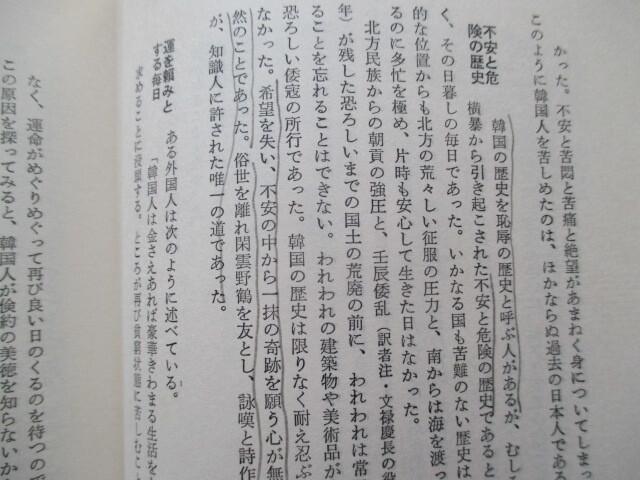 かった。不安と苦悶と苦痛と絶望があまねく身についてしまっ
このように韓国人を苦しめたのは、ほかならぬ過去の日本人であ
不安と危
険の歴史
韓国の歴史を恥辱の歴史と呼ぶ人があるが、むしろ
横暴から引き起こされた不安と危険の歴史であると
く、その日暮しの毎日であった。いかなる国も苦難のない歴史は
的な位置からも北方の荒々しい征服の圧力と、南からは海を渡っ
るのに多忙を極め、片時も安心して生きた日はなかった。
北方民族からの朝貢の強圧と、壬辰倭乱(訳者注・文禄慶長の役
年)が残した恐ろしいまでの国土の荒廃の前に、われわれは常
ることを忘れることはできない。われわれの建築物や美術品が
恐ろしい倭寇の所行であった。韓国の歴史は限りなく耐え忍ぶ
なかった。希望を失い、不安の中から一抹の奇跡を願う心が無
然のことであった。俗世を離れ閑雲野鶴を友とし、詠嘆と詩作
が、知識人に許された唯一の道であった。
運を頼みと
する毎日
ある外国人は次のように述べている。
「韓国人は金さえあれば豪華きわまる生活を
求めることに没頭する。ところが再び貧窮状態に苦しむこ
なく、運命がめぐりめぐって再び良い日のくるのを待つので
この原因を探ってみると、韓国人が倹約の美徳を知らないか